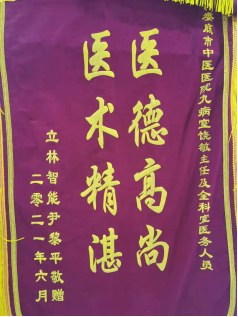 娄底市中医医院九病室饶敏主任及全科室医务人员
医德高尚
医术精湛
立林智能尹黎平敬赠
二零二一年六月